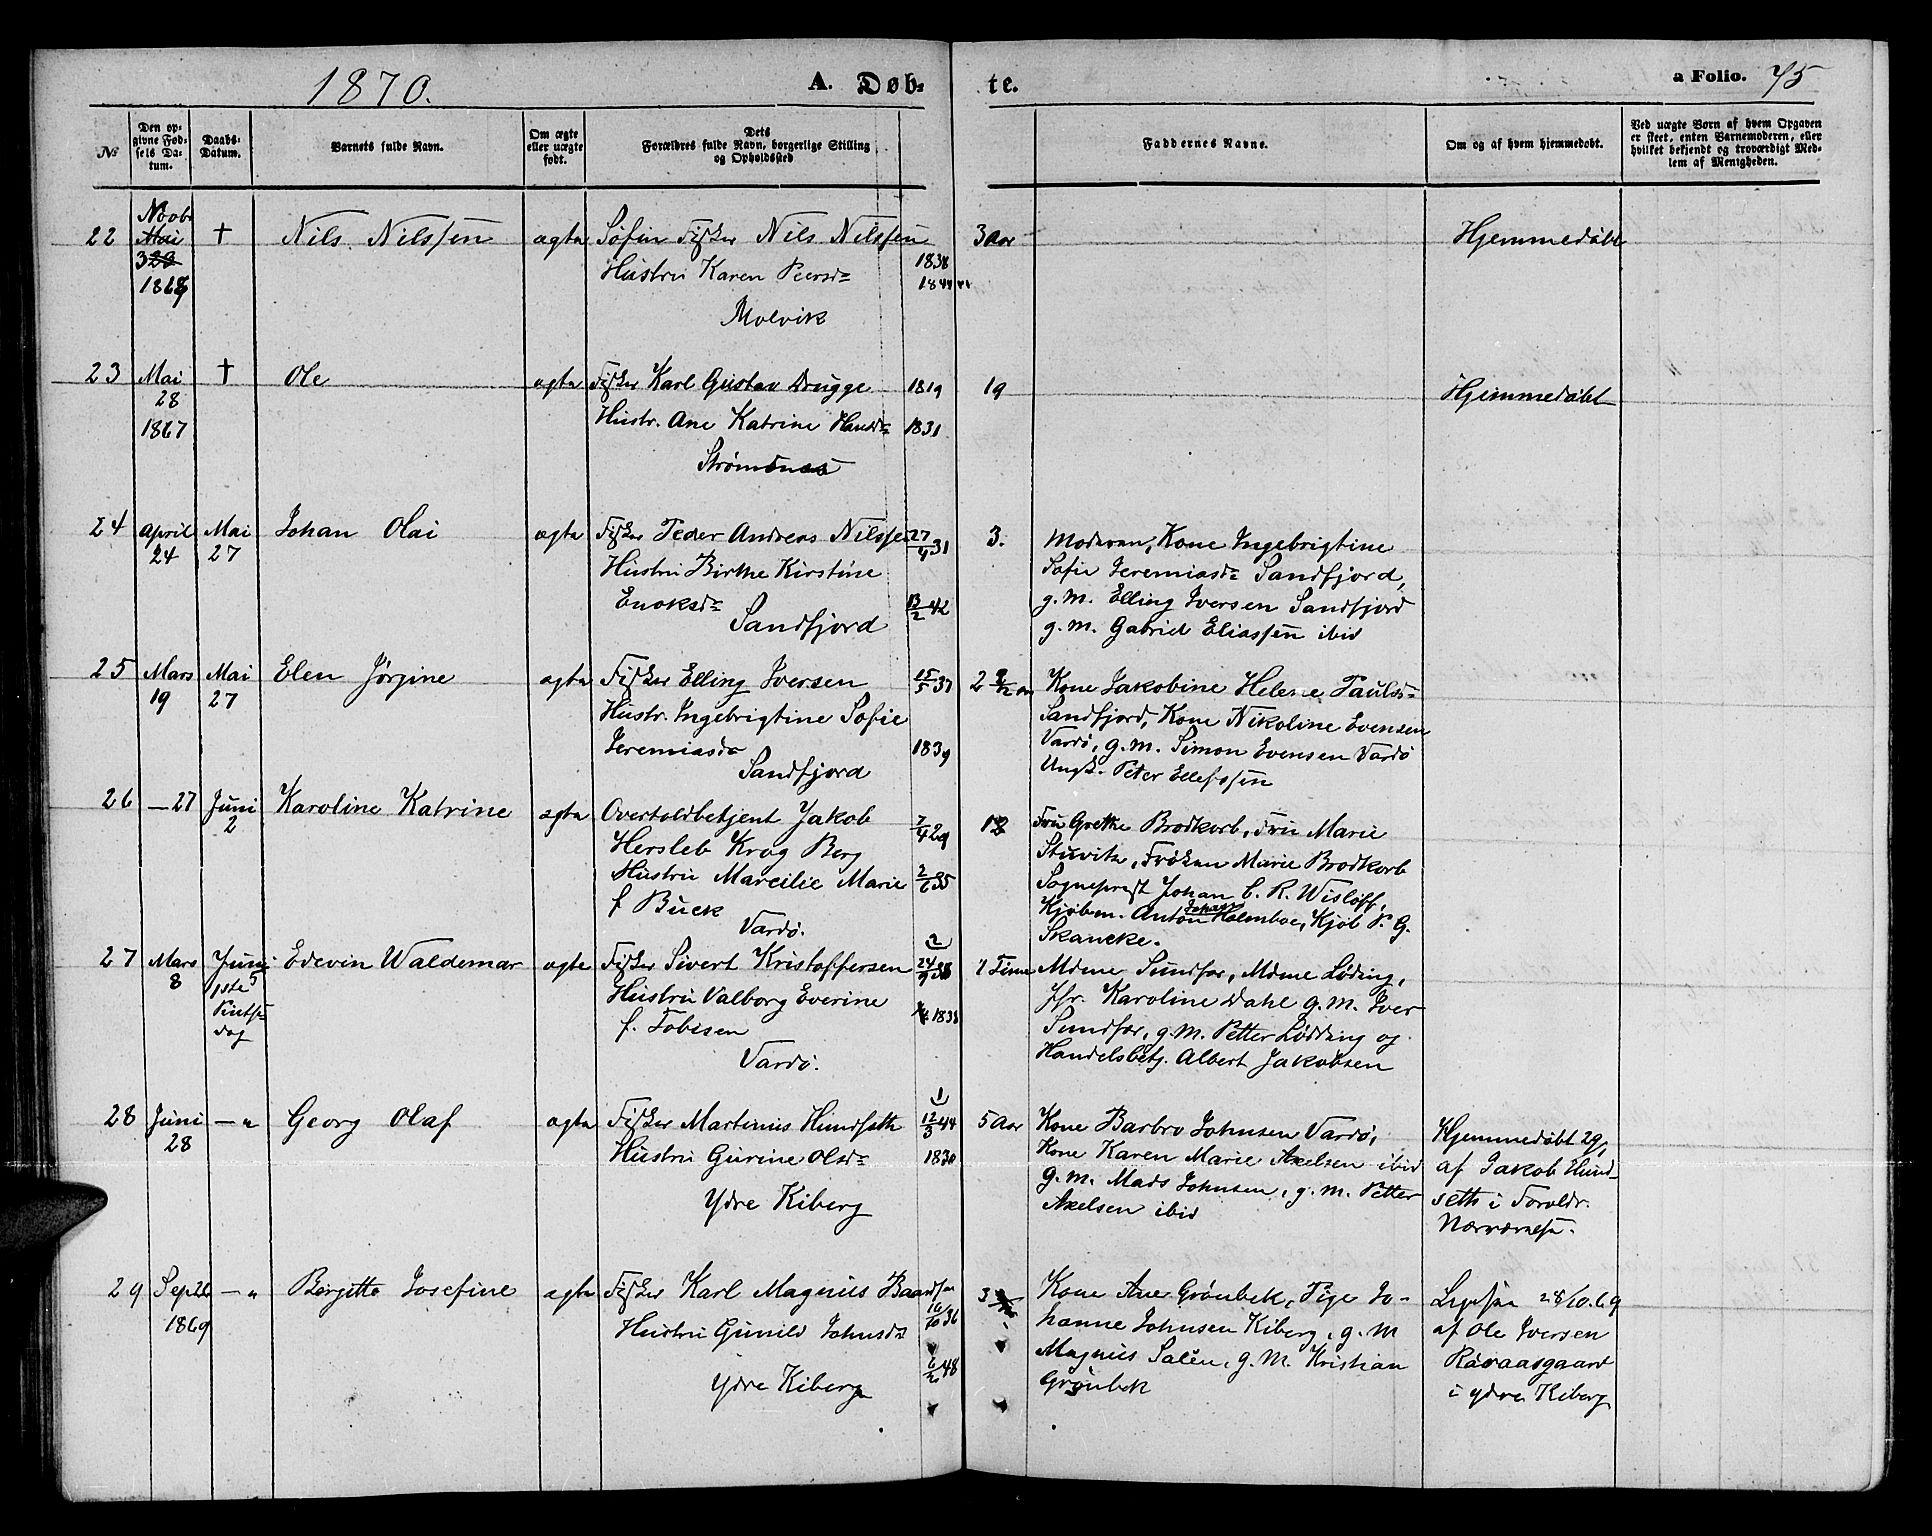 1870.
A. Døb-
te.
a Folio. 75
№
Den op-
givne Fød-
sels Da-
tum.
Daabs-
Datum.
Barnets fulde Navn.
Om ægte
eller uægte
født.
Dets
Forældres fulde Navn, borgerlige Stilling
og Opholdssted
Faddernes Navne.
Om og af hvem hjemmedøbt.
Ved uægte Børn af hvem Opgaven
er skeet, enten Barnemoderen, eller
hvilket bekjendt og troværdigt Med-
lem af Menigheden.
22
Novbr
Mai
1869
†
Nils Nilssen
ægte
Søfin Fisker Nils Nilssen
1838
Hustru Karen Peersd.
1844
Molvik
3 Aar
Hjemmedøbt
23
Mai
28
1867
†
Ole
ægte
Fisker Karl Gustav Drugge
1819
Hustr. Ane Katrine Hansd.
1831
Strømsnes
19
Hjemmedøbt
24
April
24
Mai
27
Johan Olai
ægte
Fisker Peder Andreas Nilssen
27/9 31
Hustru Birthe Kirstine
Enoksd.
13/2 42
Sandfjord
3.
Moderen, Kone Ingebrigtine
Sofie Jeremiasd. Sandfjord,
g.m. Elling Iversen Sandfjord
g.m. Gabriel Eliassen ibid
25
Mars
19
Mai
27
Elen Jørgine
ægte
Fisker Elling Iversen
15/5 37
Hustr. Ingebrigtine Sofie
Jeremiasd.
1839
Sandfjord
Kone Jakobine Helene Paulsd.
Sandfjord, Kone Nikoline Evensen
Vardø, g.m. Simon Evensen Vardø
Ungk. Peter Ellefssen
26
— 27
Juni
2
Karoline Katrine
ægte
Overtoldbetjent Jakob
7/4 29
Hersleb Krog Berg
Hustru Marcilie Marie
2/6 35
f. Buck
Vardø.
12
Fru Grethe Brodkorb, Fru Marie
Stuvitz, Frøken Marie Brodkorb
Sogneprest Johan C. R. Wisløff,
Kjøbm. Anton Johan Holmboe, Kjøb P. G.
Skancke.
27
Mars
8
Juni
5
1ste
Pintse
dag
Edevin Waldemar
ægte
Fisker Sivert Kristoffersen
24/9 38
Hustru Valborg Everine
1838
f. Tobisen
Vardø.
Mdme Sundfær, Mdme Løding,
Jfr. Karoline Dahl g.m. Iver
Sundfær, g.m. Petter Lødding og
Handelsbetj. Albert Jakobsen
28
Juni
28
— "
Georg Olaf
ægte
Fisker Martinus Hundseth
12/3 44
Hustru Gurine Olsd.
1830
Ydre Kiberg
5 Aar
Kone Barbro Johnsen Vardø,
Kone Karen Marie Axelsen ibid
g.m. Mads Johnsen, g.m. Petter
Axelsen ibid
Hjemmedøbt 29/
af Jakob Hund-
seth i Foreldr.
Nærværelse.
29
Sep 22
1869
— "
Birgitte Josefine
ægte
Fisker Karl Magnus Baardsen
16/10 36
Hustru Gunild Johnsd.
6/2 48
Ydre Kiberg
3
Kone Ane Grønbek, Pige Jo-
hanne Johnsen Kiberg, g.m
Magnus Salen, g.m. Kristian
Grønbek
28/10.69
af Ole Iversen
i ydre Kiberg